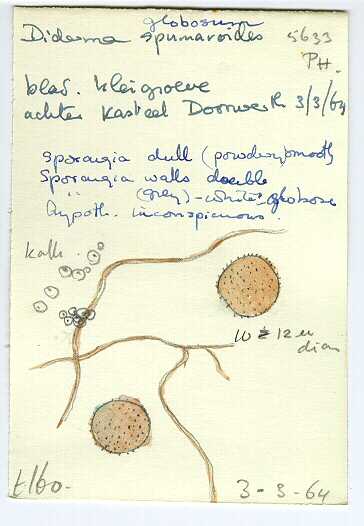 globosum
Diderma spumaroides 5633
PH.
blad. kleigroeve
achter Kasteel Doorwerth 3/3/64
Sporangia dull (powdery) smooth
Sporangia walls double
" (grey) - white globose
hypoth. inconspicuous.
kalk.
10 ± 12 u
diam
Elbo.
3-3-64